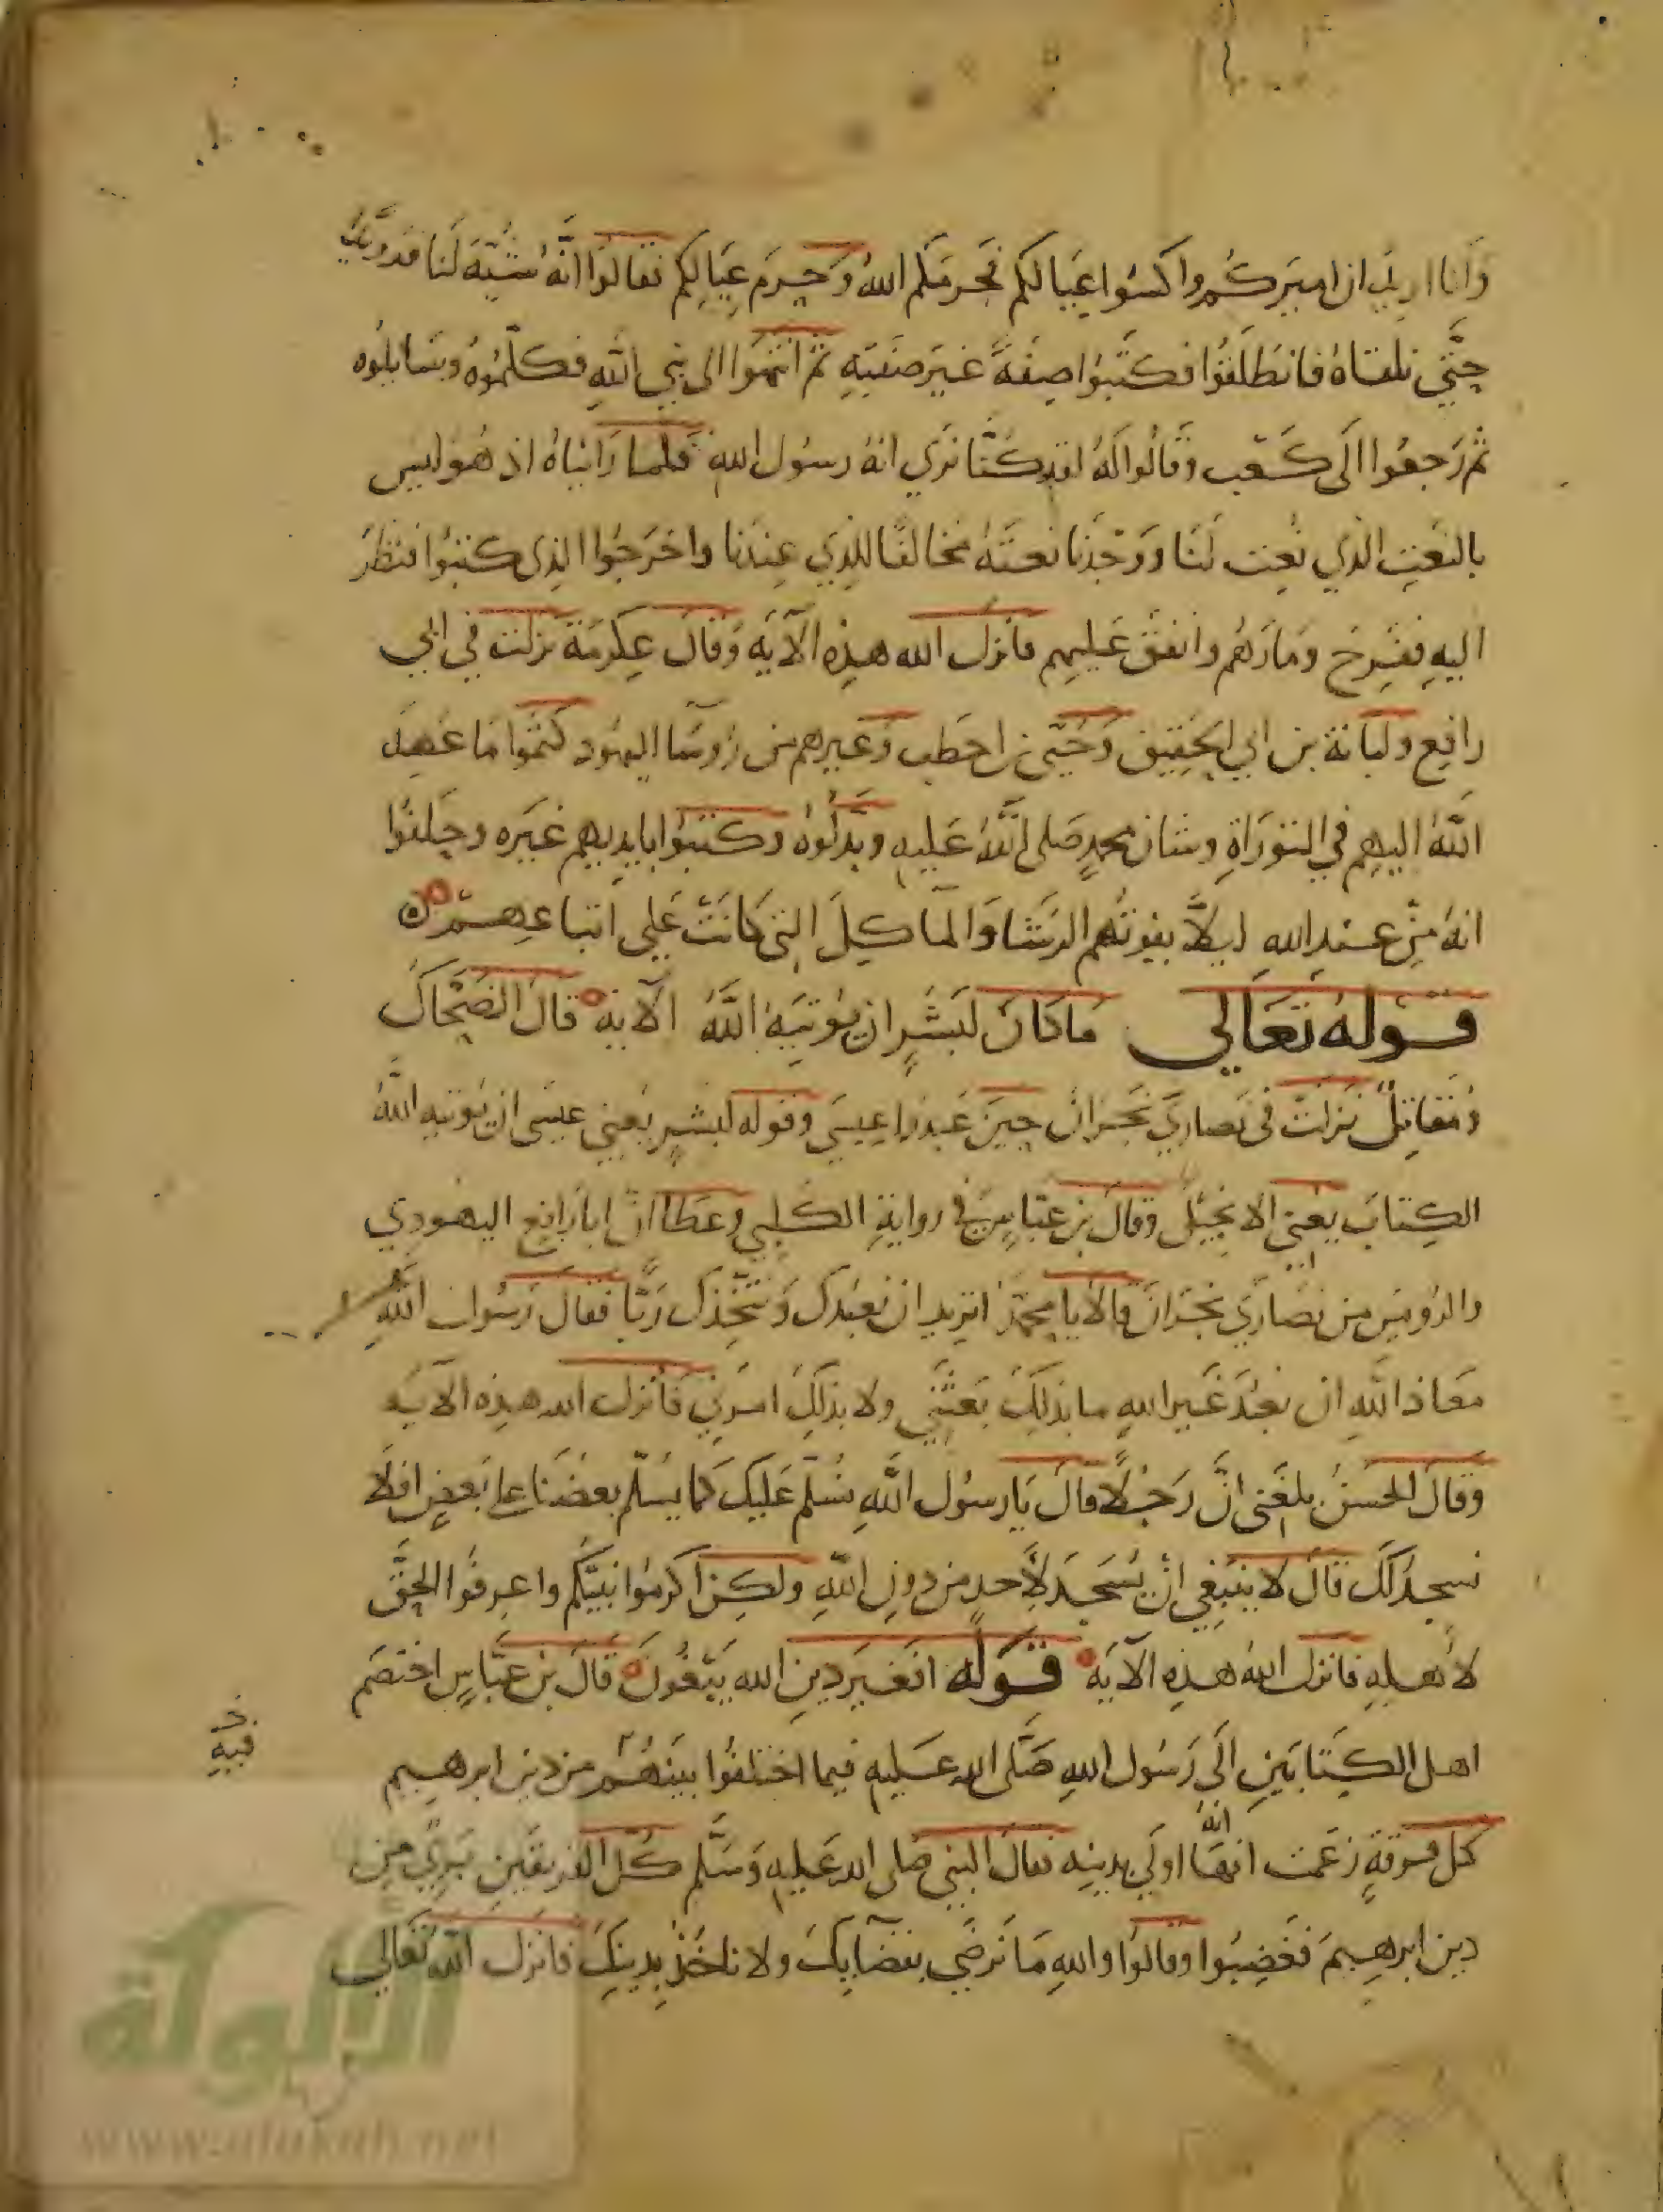 وَانا اريد ان اميركم واكسوا عيالكم فحرمكم الله وحرم عيالكم فقالوا انه شبه لنا فرويدًا
حتى نلقاه فانطلقوا فكتبوا صفة غير صفته ثم انتهوا الى نبي الله فكلموه وسايلوه
ثم رجعوا الى كعب وقالوا له لقد كنا نرى انه رسول الله فلما رايناه اذ هو ليس
بالنعت الذي نعت لنا ووجدنا نعته مخالفا للذي عندنا واخرجوا الذى كتبوا فنظر
اليه ففرح ومارهم وانفق عليهم فانزل الله هذه الآية وقال عكرمة نزلت في ابي
رافع ولبابة بن ابي الحقيق وحيي بن احطب وغيرهم من روسا اليهود كتموا ما عهد
الله اليهم في التوراة وشان محمد صلى الله عليه وبدلوه وكتبوا بايديهم غيره وحلفوا
انه من عند الله ليلا يفوتهم الرشا والمآكل التى كانت على اتباعهم
قوله تعالى ما كان لبشر ان يؤتيه الله الآية قال الضحاك
ومقاتل نزلت فى نصارى نجران حين عبدوا عيسى وقوله لبشر يعني عيسى ان يوتيه الله
الكتاب يعنى الانجيل وقال بن عباس في رواية الكلبي وعطا ان ابا رافع اليهودي
والرويس من نصارى نجران قالا يا محمد اتريد ان نعبدك ونتخذك ربا فقال رسول الله
معاذ الله ان نعبد غير الله ما بذلك بعثني ولا بذلك امرني فانزل الله هذه الآية
وقال الحسن بلغنى ان رجلا قال يا رسول الله نسلم عليك كما يسلم بعضنا على بعض افلا
نسجد لك قال لا ينبغي ان يسجد لاحد من دون الله ولكن اكرموا نبيكم واعرفوا الحق
لاهله فانزل الله هذه الآية قوله افغير دين الله يبغون قال بن عباس اختصم
اهل الكتابين الى رسول الله صلى الله عليه فيما اختلفوا بينهم من دين ابرهيم
فيه
كل فرقة زعمت انها انه اولى بدينه فقال النبي صلى الله عليه وسلم كل الفريقين بري من
دين ابرهيم فغضبوا وقالوا والله ما نرضى بقضايك ولا ناخذ بدينك فانزل الله تعالى
الألوكة
www.alukah.net